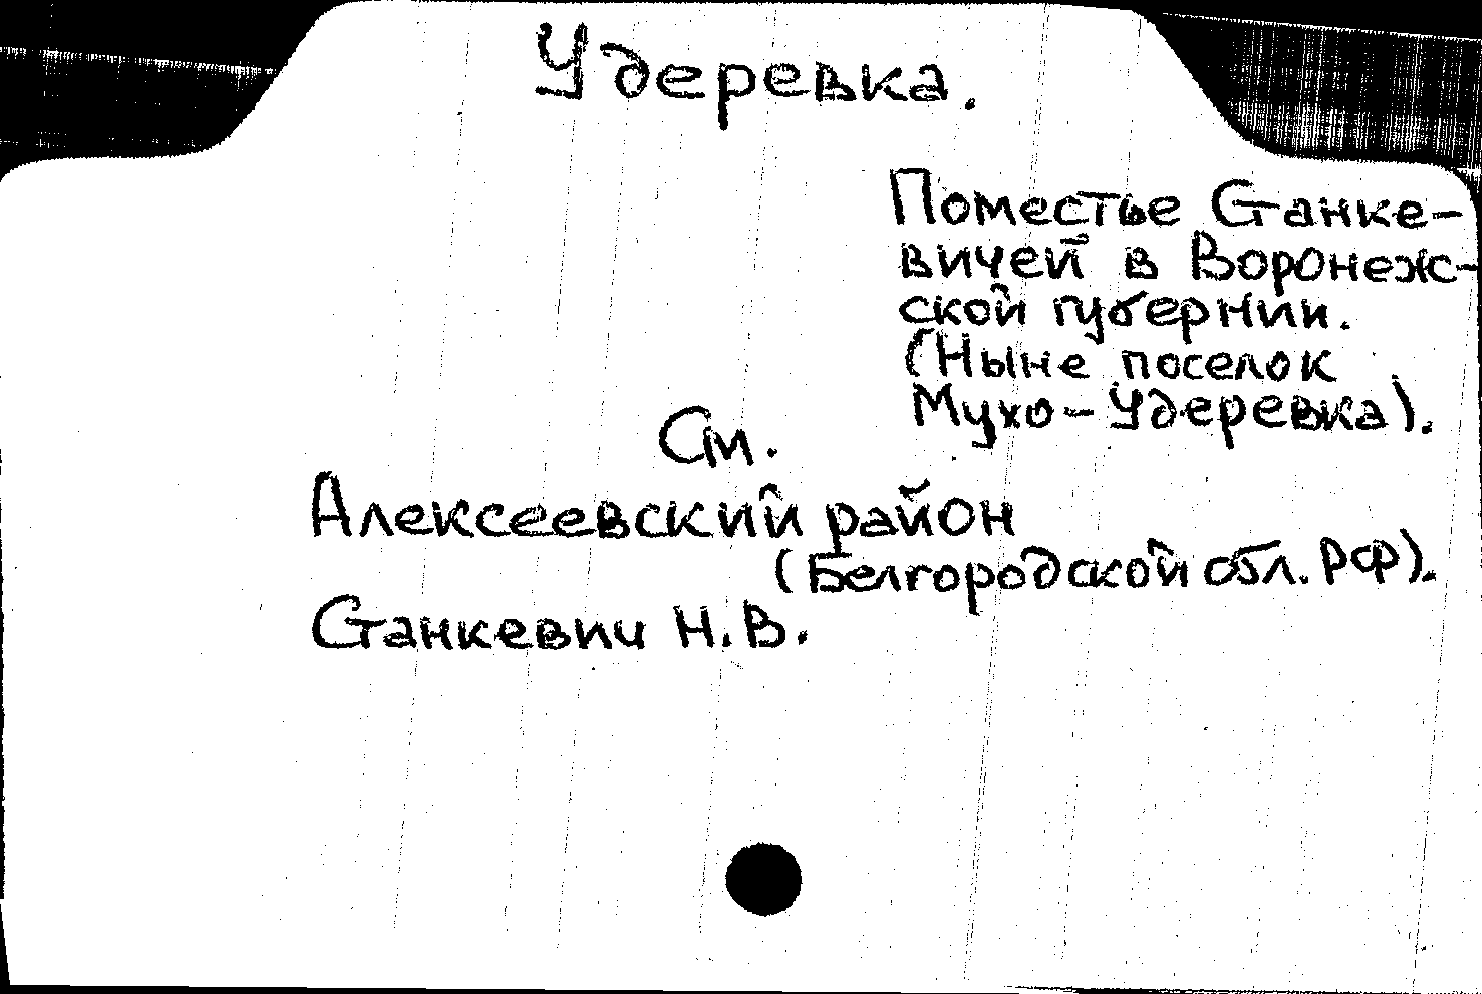 Удеревка.
Поместье Станке-
вичей в Воронеж-
ской губернии.
(Ныне поселок
Мухо-Удеревка).
См.
Алексеевский район
(Белгородской обл. РФ).
Станкевич Н.В.